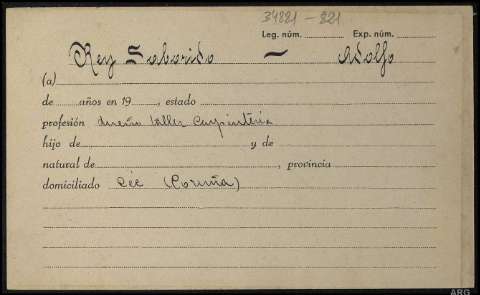 34821-821
Leg. núm. Exp. núm.
Rey Saborido - Adolfo
(a)
de años en 19 , estado
profesión dueño taller Carpinteria
hijo de y de
natural de , provincia
domiciliado Cée (Coruña)
ARG